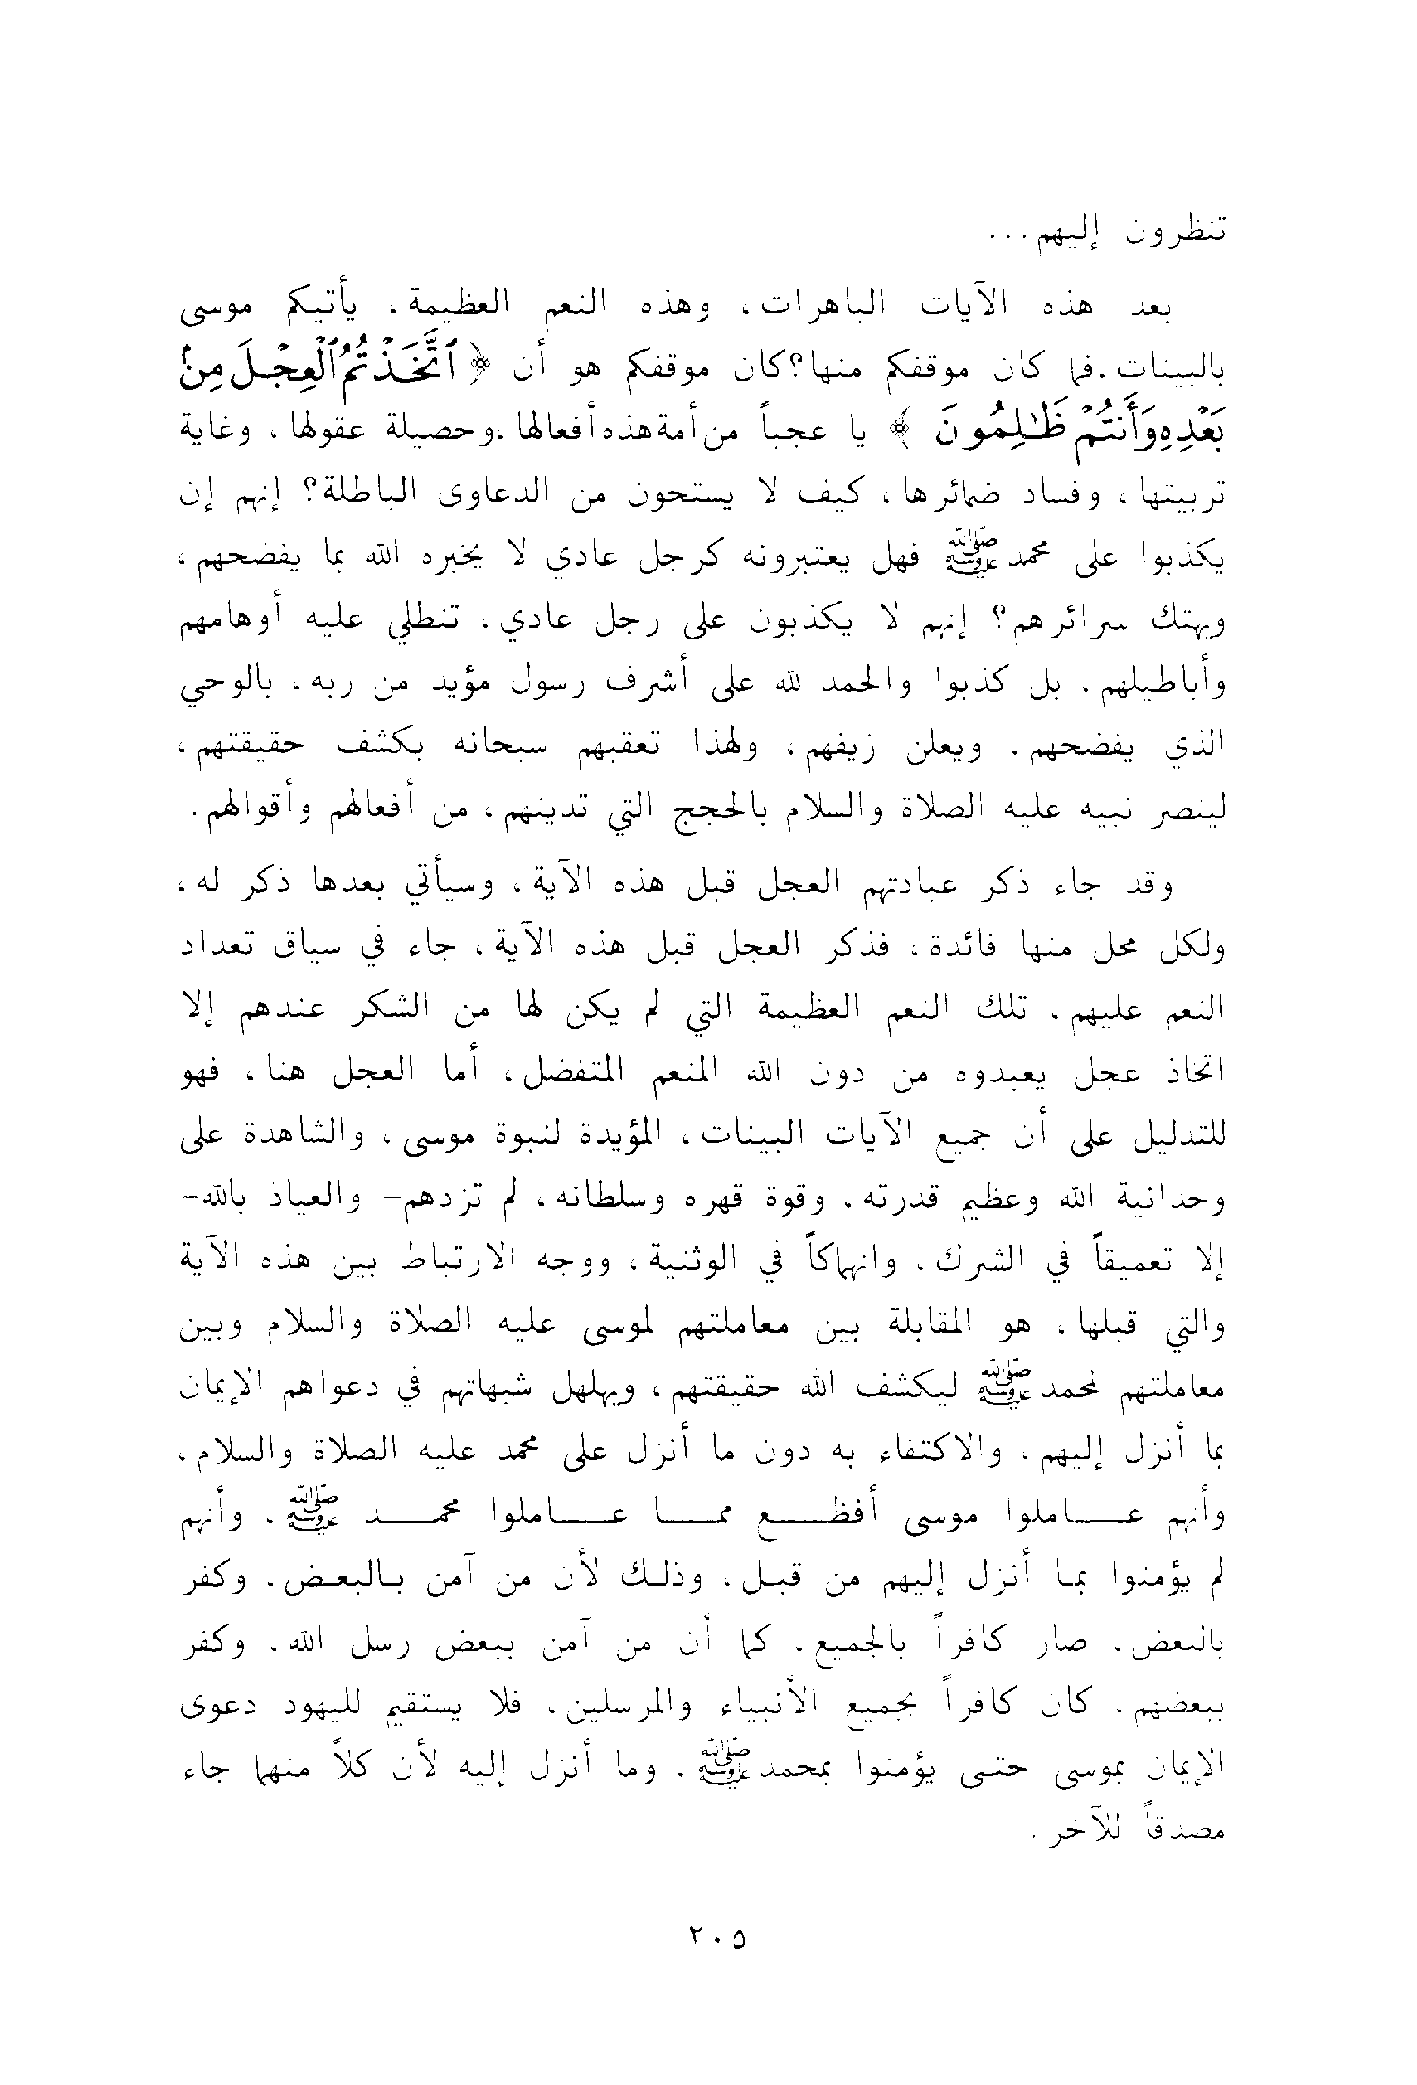 تنظرون إليهم...
بعد هذه الآيات الباهرات، وهذه النعم العظيمة، يأتيكم موسى
بالبينات. فما كان موقفكم منها؟ كان موقفكم هو أن ﴿ ٱتَّخَذْتُمُ ٱلْعِجْلَ مِنۢ
بَعْدِهِۦ وَأَنتُمْ ظَٰلِمُونَ ﴾ يا عجباً من أمة هذه أفعالها. وحصيلة عقولها، وغاية
تربيتها، وفساد ضمائرها، كيف لا يستحون من الدعاوى الباطلة؟ إنهم إن
يكذبوا على محمد ﷺ فهل يعتبرونه كرجل عادي لا يخبره الله بما يفضحهم،
ويهتك سرائرهم؟ إنهم لا يكذبون على رجل عادي. تنطلي عليه أوهامهم
وأباطيلهم. بل كذبوا والحمد لله على أشرف رسول مؤيد من ربه، بالوحي
الذي يفضحهم. ويعلن زيفهم، ولهذا تعقبهم سبحانه بكشف حقيقتهم،
لينصر نبيه عليه الصلاة والسلام بالحجج التي تدينهم، من أفعالهم وأقوالهم.
وقد جاء ذكر عبادتهم العجل قبل هذه الآية، وسيأتي بعدها ذكر له،
ولكل محل منها فائدة، فذكر العجل قبل هذه الآية، جاء في سياق تعداد
النعم عليهم. تلك النعم العظيمة التي لم يكن لها من الشكر عندهم إلا
اتخاذ عجل يعبدوه من دون الله المنعم المتفضل، أما العجل هنا، فهو
للتدليل على أن جميع الآيات البينات، المؤيدة لنبوة موسى، والشاهدة على
وحدانية الله وعظيم قدرته. وقوة قهره وسلطانه، لم تزدهم- والعياذ بالله-
إلا تعميقاً في الشرك. وانهماكاً في الوثنية، ووجه الارتباط بين هذه الآية
والتي قبلها، هو المقابلة بين معاملتهم لموسى عليه الصلاة والسلام وبين
معاملتهم لمحمد ﷺ ليكشف الله حقيقتهم، ويهلهل شبهاتهم في دعواهم الإيمان
بما أنزل إليهم، والاكتفاء به دون ما أنزل على محمد عليه الصلاة والسلام،
وأنهم عـاملوا موسى أفظـع ممـا عـاملوا محمـد ﷺ. وأنهم
لم يؤمنوا بما أنزل إليهم من قبل، وذلك لأن من آمن بالبعض. وكفر
بالبعض. صار كافراً بالجميع. كما أن من آمن ببعض رسل الله. وكفر
ببعضهم. كان كافراً بجميع الأنبياء والمرسلين، فلا يستقيم لليهود دعوى
الإيمان بموسى حتى يؤمنوا بمحمد ﷺ. وما أنزل إليه لأن كلاً منهما جاء
مصدقاً للآخر.
٢٠٥